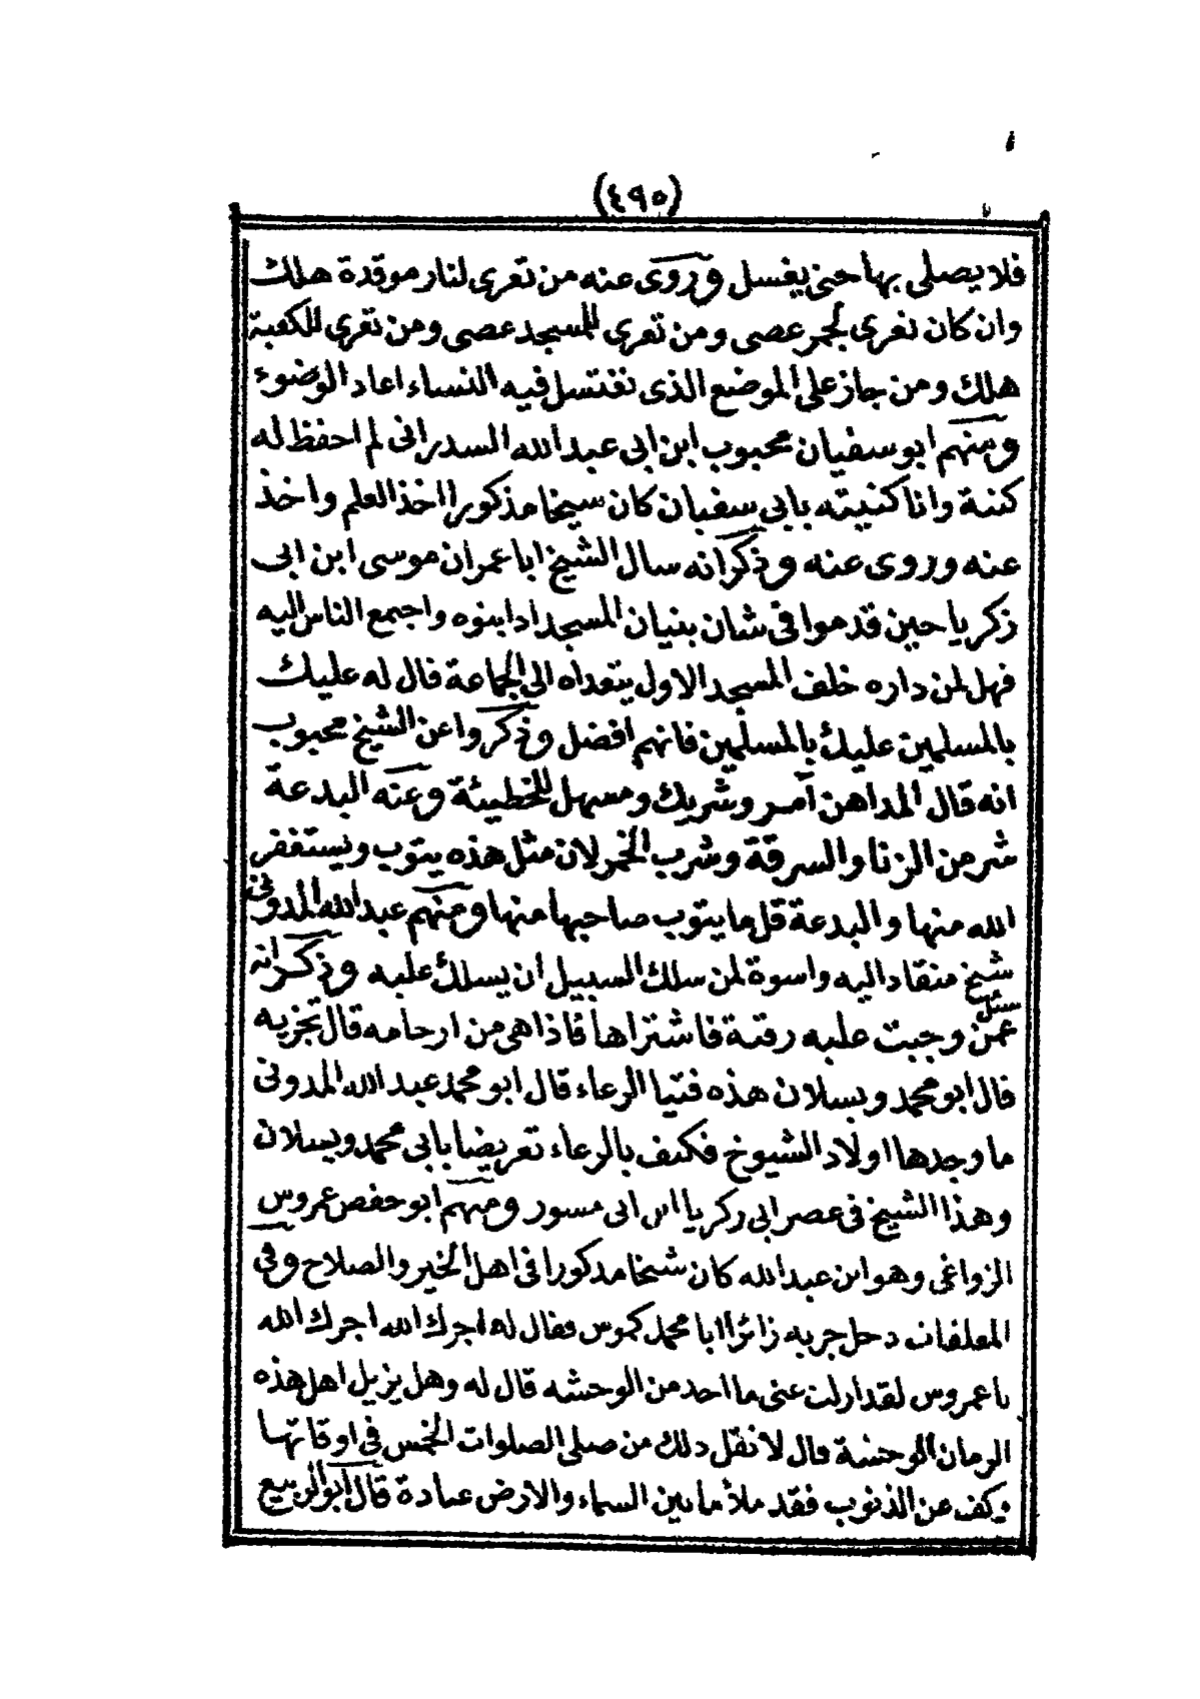 (٤٩٥)
فلا يصلى بها حتى يغسل وروى عنه من تعرى لنار موقدة هلك
وان كان تعرى لجمر عصى ومن تعرى للمسجد عصى ومن تعرى للكعبة
هلك ومن جاز على الموضع الذى تغتسل فيه النساء اعاد الوضوء
ومنهم ابو سفيان محبوب ابن ابى عبد الله السدراتى لم احفظ له
كنية وانا كنيته بابى سفيان كان شيخا مذكورا اخذ العلم واخذ
عنه وروى عنه وذكر انه سال الشيخ ابا عمران موسى ابن ابى
زكرياحين قدموا فى شان بنيان المسجد اذ ابنوه واجتمع الناس اليه
فهل لمن داره خلف المسجد الاول يتعداه الى الجماعة قال له عليك
بالمسلمين عليك بالمسلمين فانهم افضل وذكروا عن الشيخ محبوب
انه قال المداهن آمر وشريك ومسهل للخطيئة وعنه البدعة
شر من الزنا والسرقة وشرب الخمر لان مثل هذه يتوب ويستغفر
الله منها والبدعة قل ما يتوب صاحبها منها ومنهم عبد الله المدونى
شيخ منقاد اليه واسوة لمن سلك السبيل ان يسلك عليه وذكر انه
سئل
عمن وجبت عليه رقبة فاشتراها فاذا هى من ارحامه قال تجزيه
قال ابو محمد ويسلان هذه فتيا الرعاء قال ابو محمد عبد الله المدونى
ما وجدها اولاد الشيوخ فكيف بالرعاء تعريضا بابى محمد ويسلان
وهذا الشيخ فى عصر ابى زكريا ابن ابى مسور ومنهم ابو حفص عمروس
الزواغى وهو ابن عبد الله كان شيخا مذكورا فى اهل الخير والصلاح وفى
المعلقات دخل جربه زائرا ابا محمد كموس فقال له اجرك الله اجرك الله
يا عمروس لقد ازلت عنى ما احد من الوحشه قال له وهل يزيل اهل هذه
الزمان الوحشة قال لا تقل ذلك من صلى الصلوات الخمس فى اوقاتها
وكف عن الذنوب فقد ملأ ما بين السماء والارض عبادة قال ابو الربيع